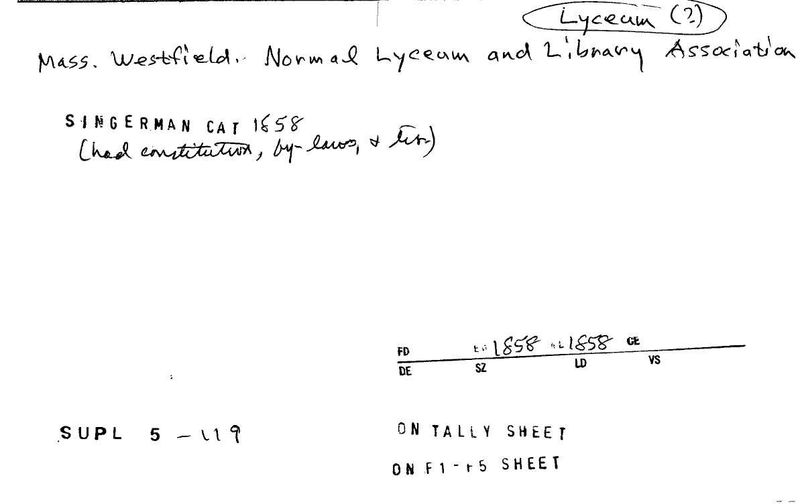 Lyceum (?)
Mass. Westfield. Normal Lyceum and Library Association
SINGERMAN CAT 1858
(had constitution, by-laws, &
FD 1858 1858 CE
DE SZ LD VS
SUPL 5 - 119
ON TALLY SHEET
ON F1-F5 SHEET